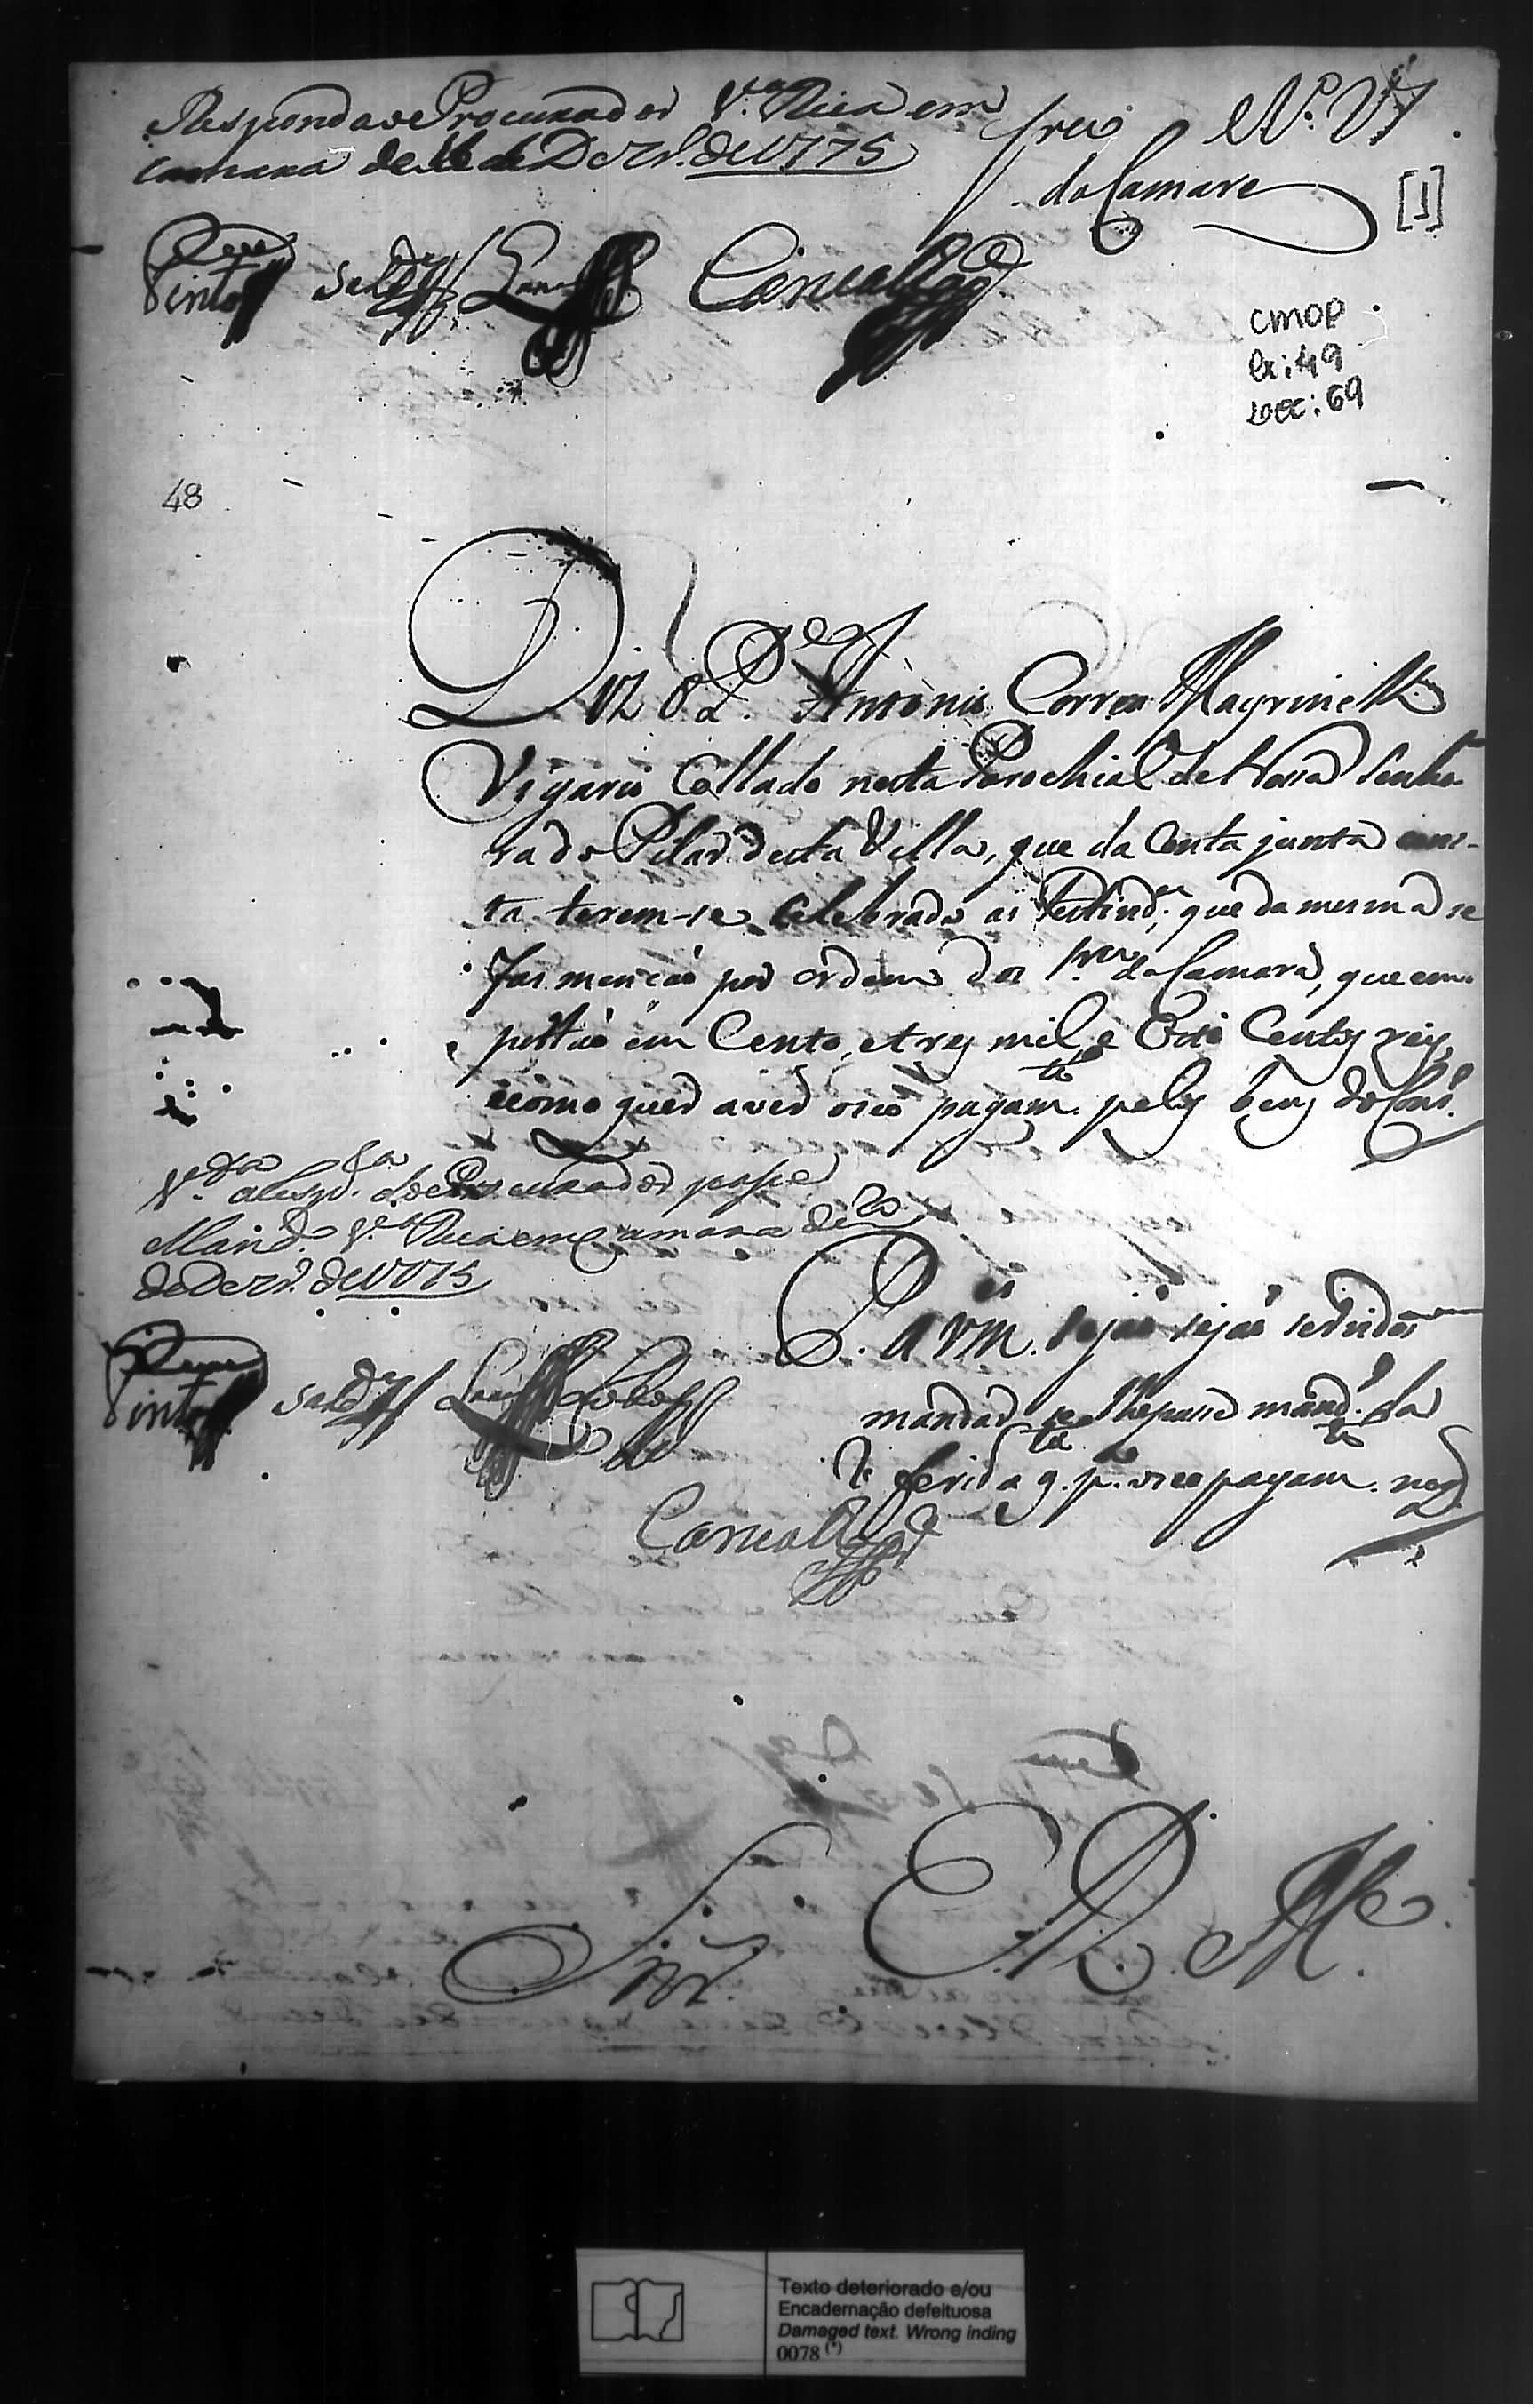 Responda o Procurador V.ª Rica em
camara de 16 de Dezr.º de 1775
N.º 17
da Camara
[1]
Pinto Sald.ª Lana
CMOP
Cx: 49
DOC: 69
48
Diz o P.e Antonio Correa Mayrinck
Vigario Collado nesta Parochial de Nossa Senho-
ra do Pilar desta Villa, que da Conta junta cons-
ta terem-se celebrado as festivid.es, que da mesma se
faz mencaõ por ordem dos da Camara, que em-
portaõ em Cento, e trez mil e Oito Centos reis,
e como quer aver o seo pagam.to pelos bens do Cons.º
V.ta a resp.ta do Procurador passe
Mand.º V.ª Rica em Camara de 20
de Dezr.º de 1775
P. a VM.es sejaõ servidos
mandar se lhe passe mand.º da
referida q.ta p.ª o seo pagam.to na
Pinto Sald.ª Lana Lobo
E. R. M.ce
Texto deteriorado e/ou
Encadernação defeituosa
Damaged text. Wrong inding
0078 (*)